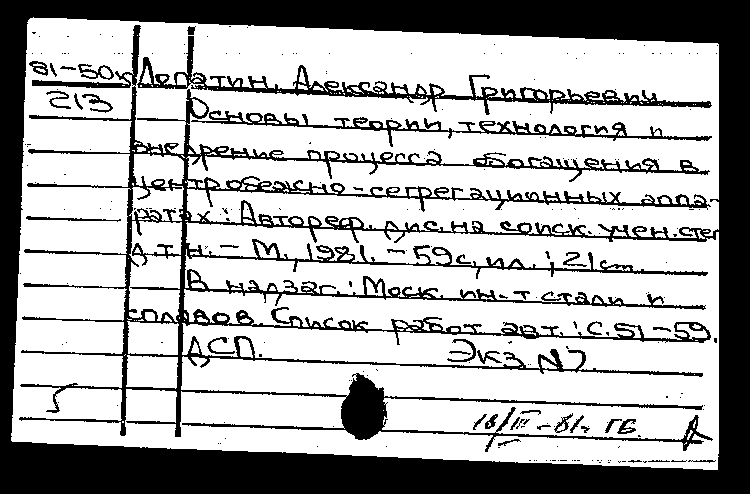 81-50к Лопатин, Александр Григорьевич
213 Основы теории, технология и
внедрение процесса обогащения в
центробежно-сегрегационных аппа-
ратах: Автореф. дис. на соиск. учен. степ
д.т.н. - М., 1981. - 59с., ил.; 21см.
В надзаг.: Моск. ин-т стали и
сплавов. Список работ авт.: С. 51-59.
ДСП. Экз. N7.
5
18/III-81г. ГБ. Д